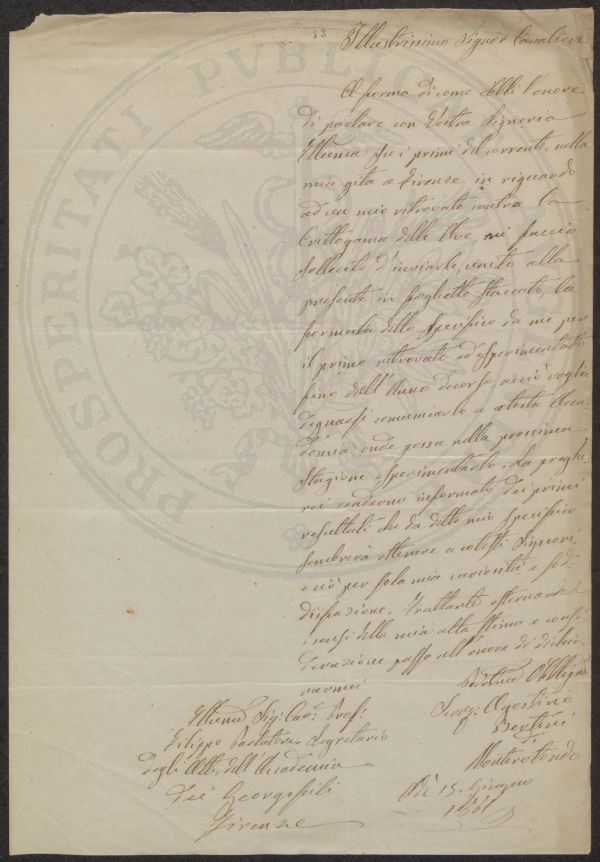 13
Illustrissimo Signor Cavaliere
A forma di come Ebbi l'onore
di parlare con Vostra Signoria
Illuma su i primi del corrente, nella
mia gita a Firenze, in riguardo
ad un mio ritrovato contro la
Crittogama delle Uve, mi faccio
sollecito d'inviarle, unito alla
presente in foglietto staccato, la
formula dello specifico da me per
il primo ritrovato ed esperimentato
fino dell'Anno decorso, acciò voglia
degnarsi comunicarlo a cotesta Acca
demia onde possa nella prossima
Stagione esperimentarlo. La preghe
rei rendermi informato dei primi
resultati che da detto mio specifico
sembrerà ottenere a cotesti Signori
e ciò per sola mia curiosità e sod
disfazione. Frattanto esternandole
i sensi della mia alta stima e consi
derazione passo all'onore di dichia
rarmi
Obbligmo
Agostino
Bertini
di
Monterotondo
Dì 15. Giugno
Illumo Sig: Cav: Prof:
Filippo Parlatore Segretario
degli Atti, dell'Accademia
Dei Georgofili
Firenze
PROSPERITATI PUBLICAE